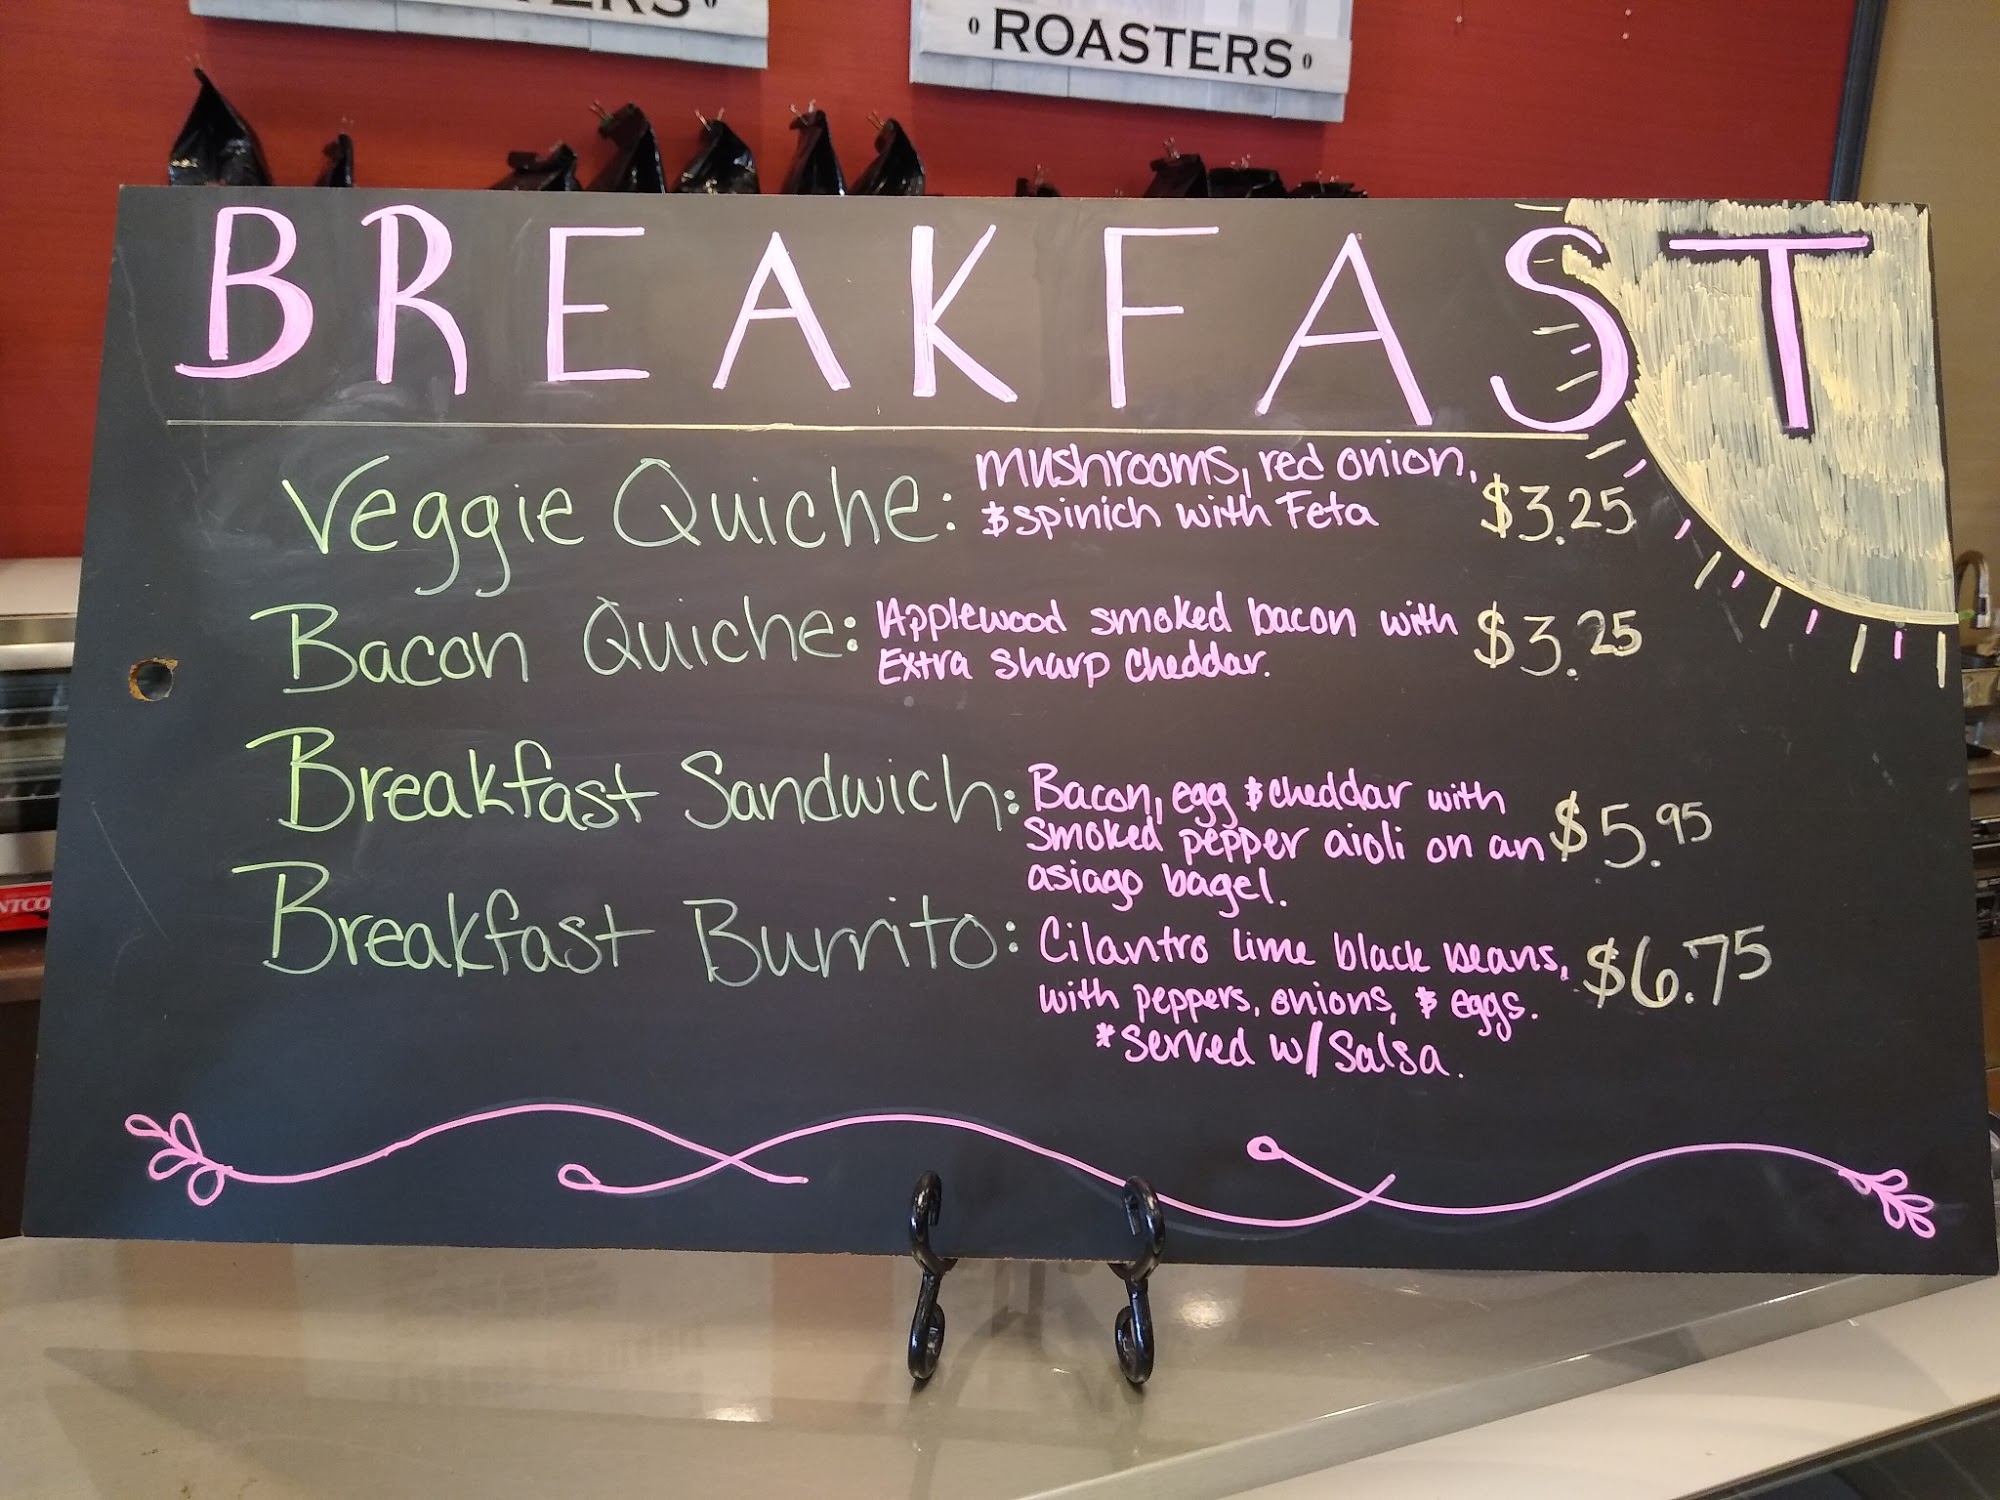 ROASTERS
BREAKFAST
Veggie Quiche: mushrooms, red onion, $3.25
& spinich with Feta
Bacon Quiche: Applewood smoked bacon with $3.25
Extra sharp cheddar.
Breakfast Sandwich: Bacon, egg & cheddar with $5.95
smoked pepper aioli on an
asiago bagel.
Breakfast Burrito: Cilantro lime black beans, $6.75
with peppers, onions, & eggs.
*served w/ salsa.